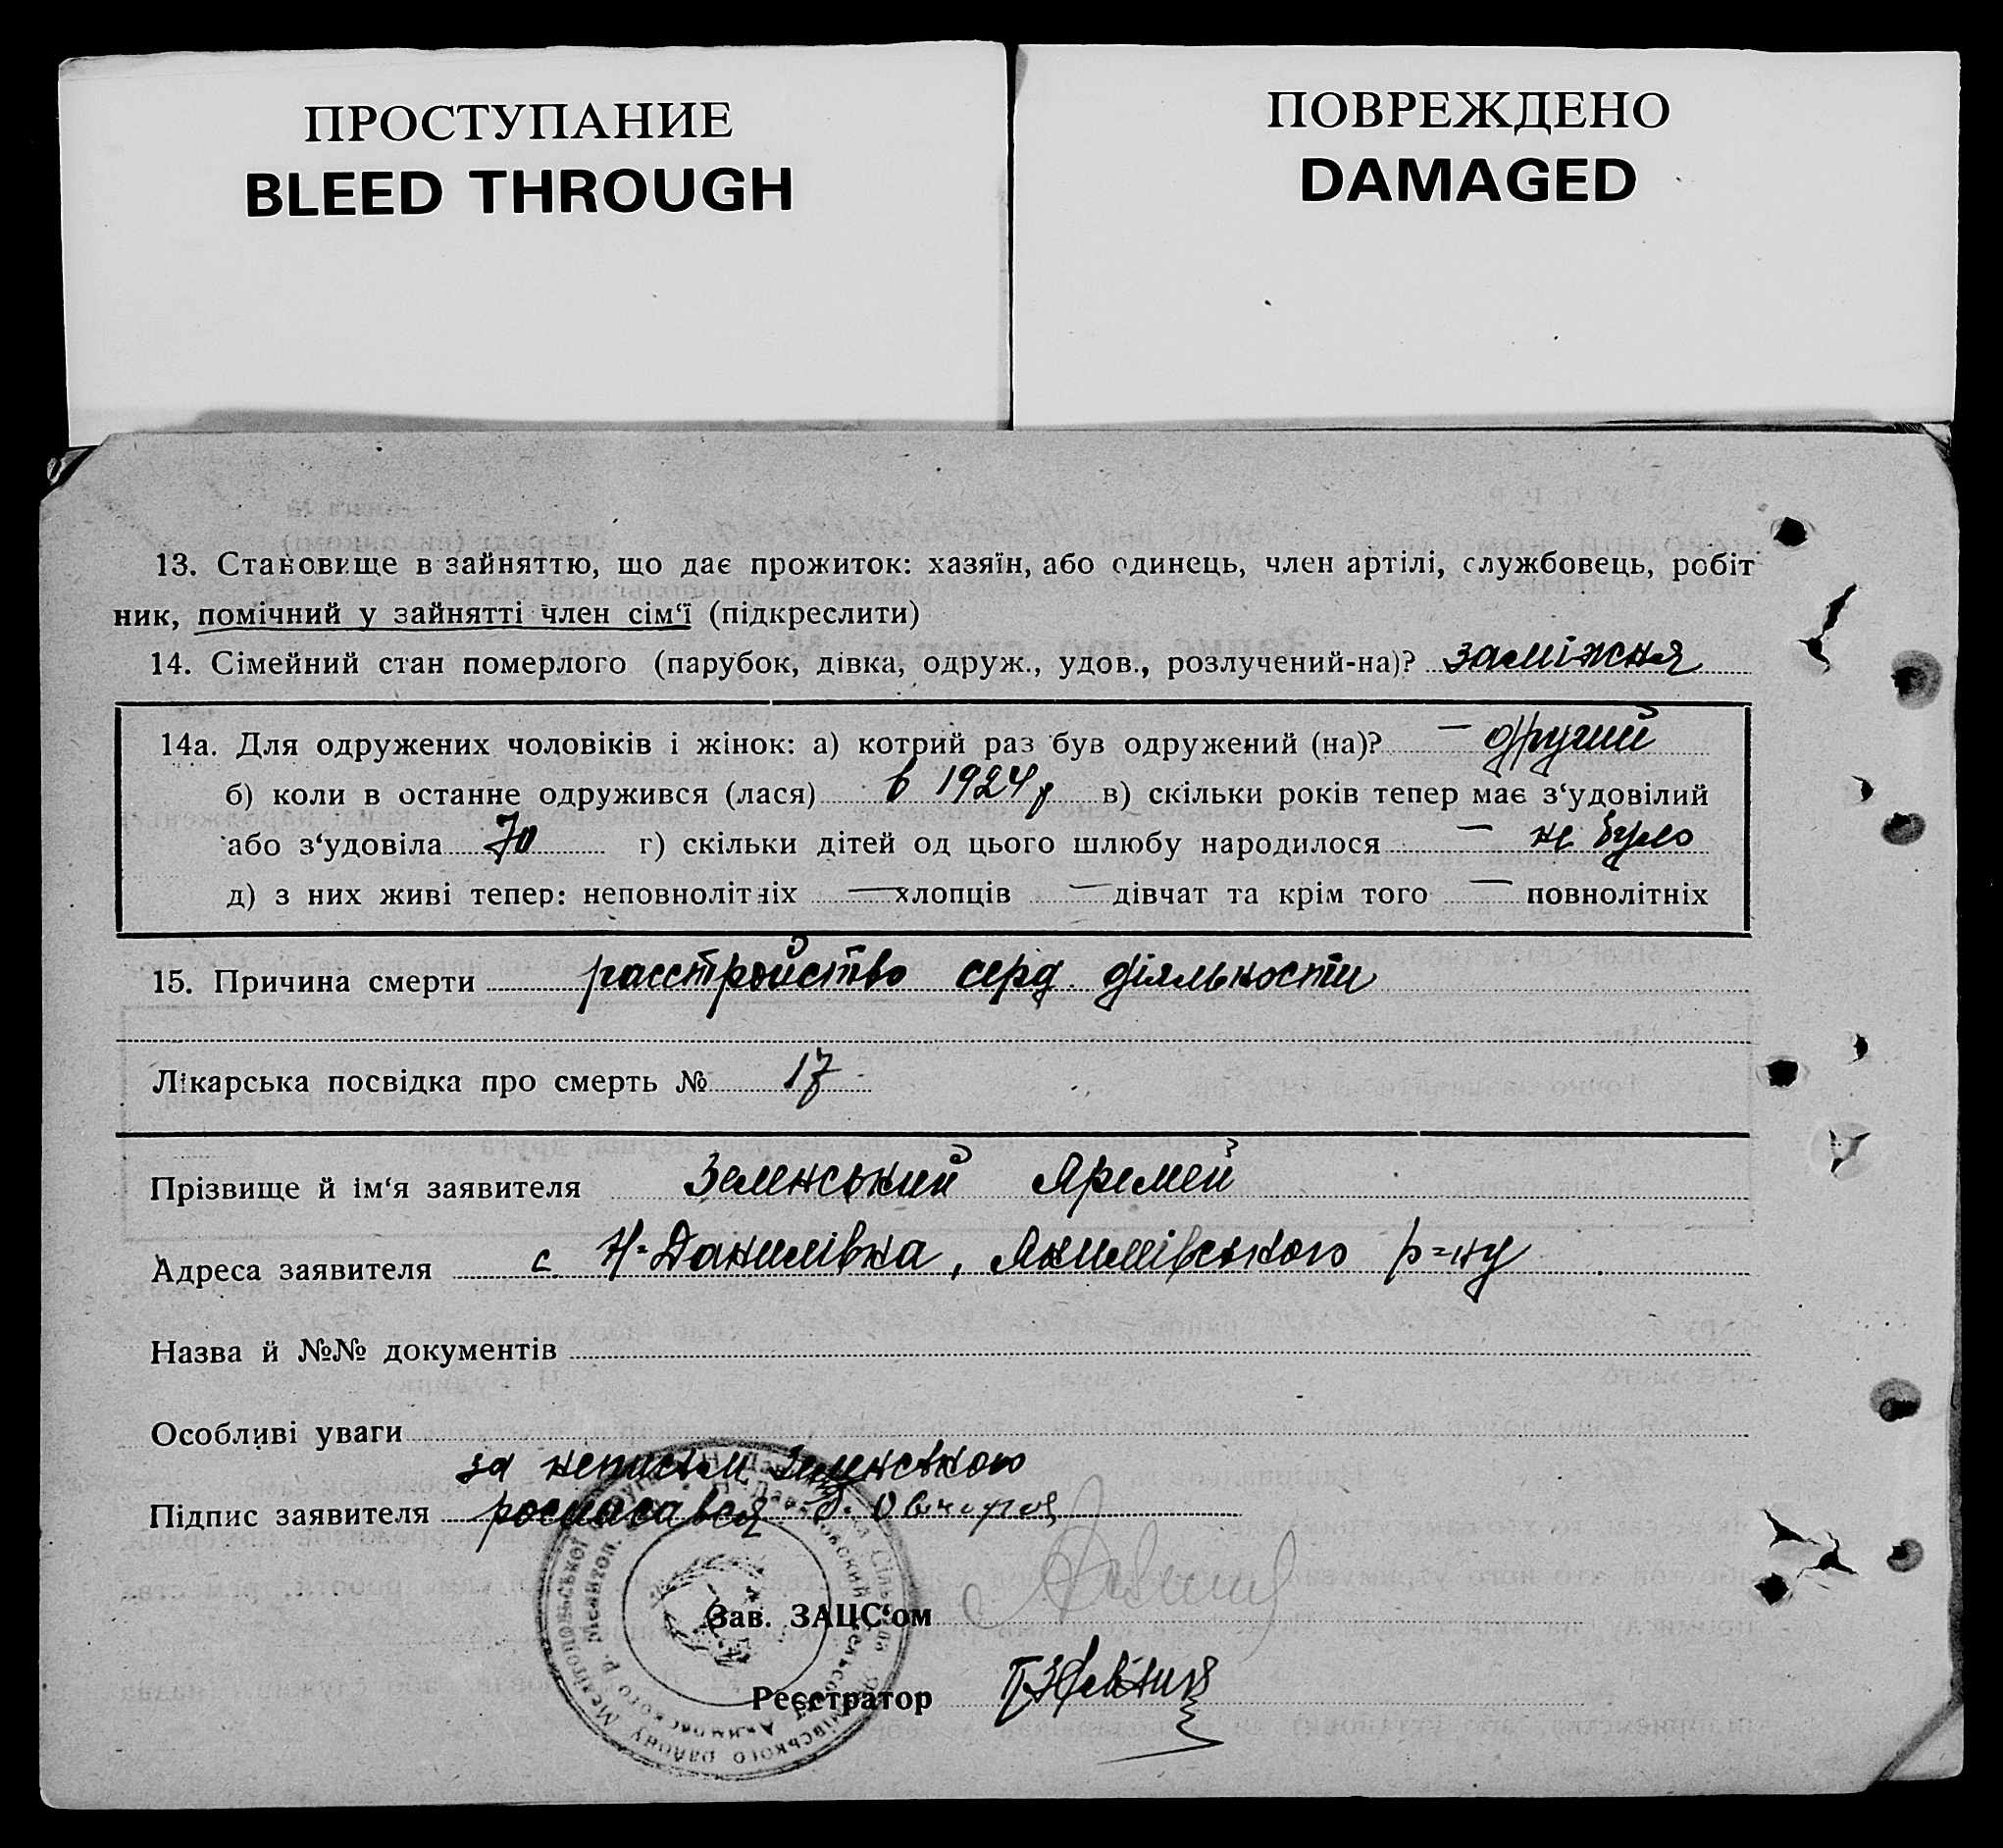 ПРОСТУПАНИЕ
BLEED THROUGH
ПОВРЕЖДЕНО
DAMAGED
13. Становище в зайняттю, що дає прожиток: хазяїн, або одинець, член артілі, службовець, робіт
ник, помічний у зайнятті член сім‘ї (підкреслити)
14. Сімейний стан померлого (парубок, дівка, одруж., удов., розлучений-на)? заміжня
14а. Для одружених чоловіків і жінок: а) котрий раз був одружений (на)? — другий
б) коли в останне одружився (лася) в 1924 р в) скільки років тепер має з‘удовілий
або з‘удовіла 70 г) скільки дітей од цього шлюбу народилося — не було
д) з них живі тепер: неповнолітніх — хлопців — дівчат та крім того — повнолітніх
15. Причина смерти расстройство серд. діяльности
Лікарська посвідка про смерть № 17
Прізвище й ім‘я заявителя Зеленський Яремей
Адреса заявителя с. Н-Данилівка, Якимівського р-ну
Назва й №№ документів
Особливі уваги
за неписьм Зеленського
Підпис заявителя росписався
Зав. ЗАЦС‘ом
Реєстратор